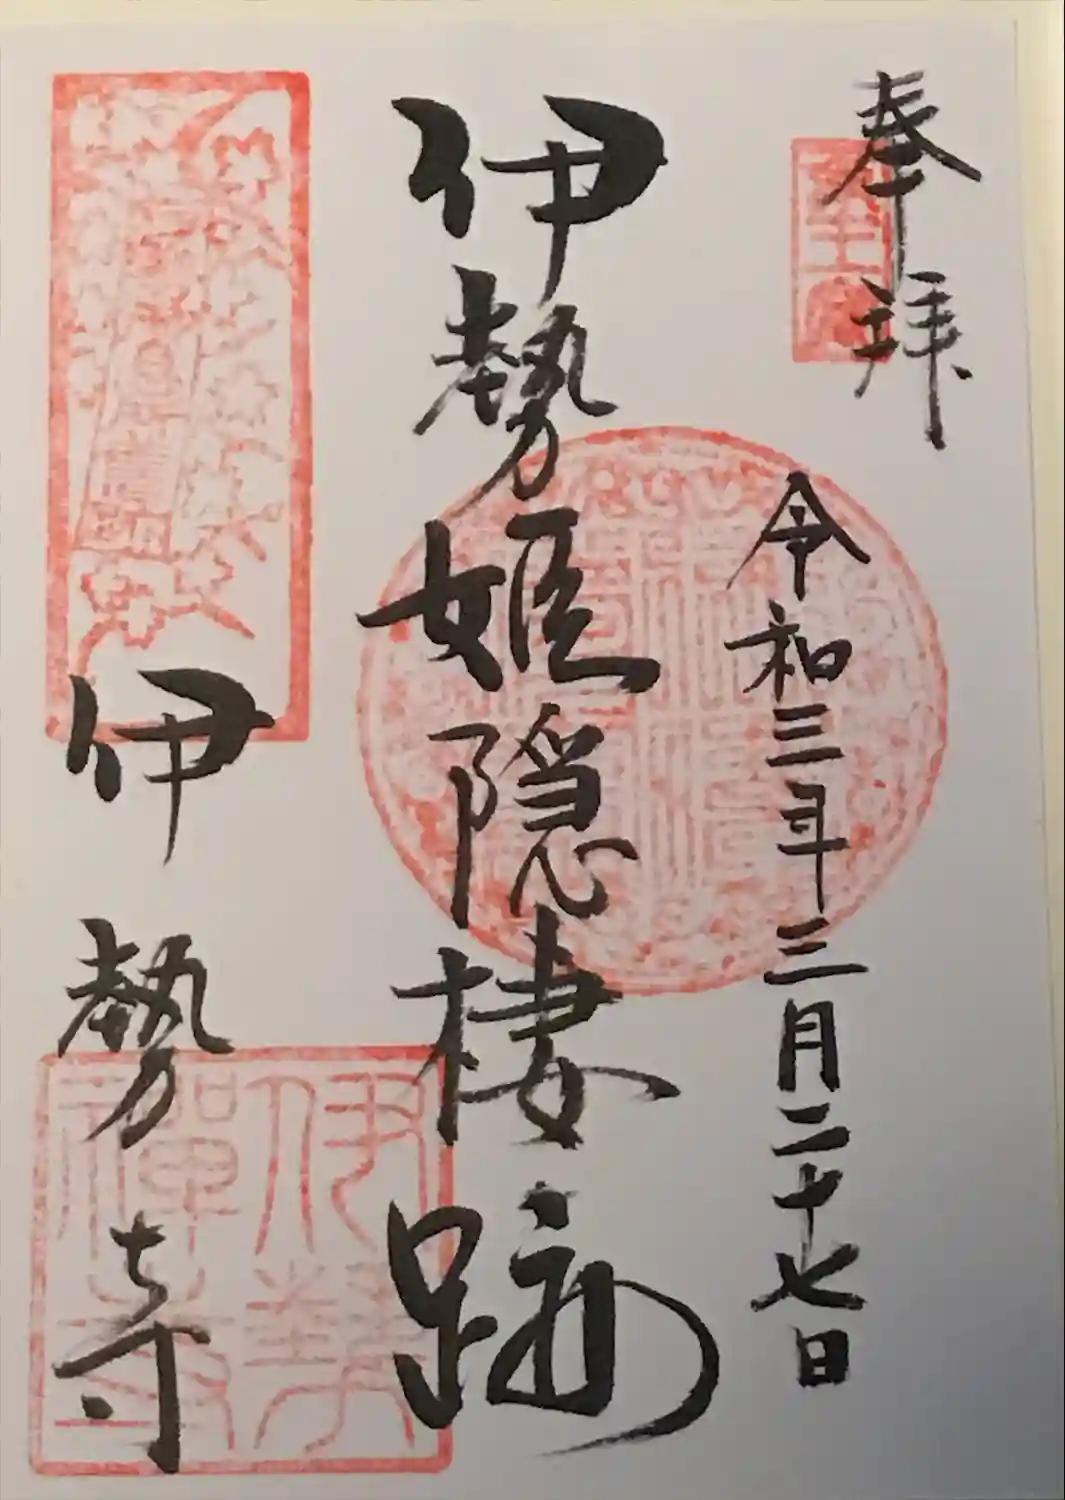 奉拝
令和三年三月二十七日
伊勢姫隠棲跡
伊勢寺
伊勢
禅寺